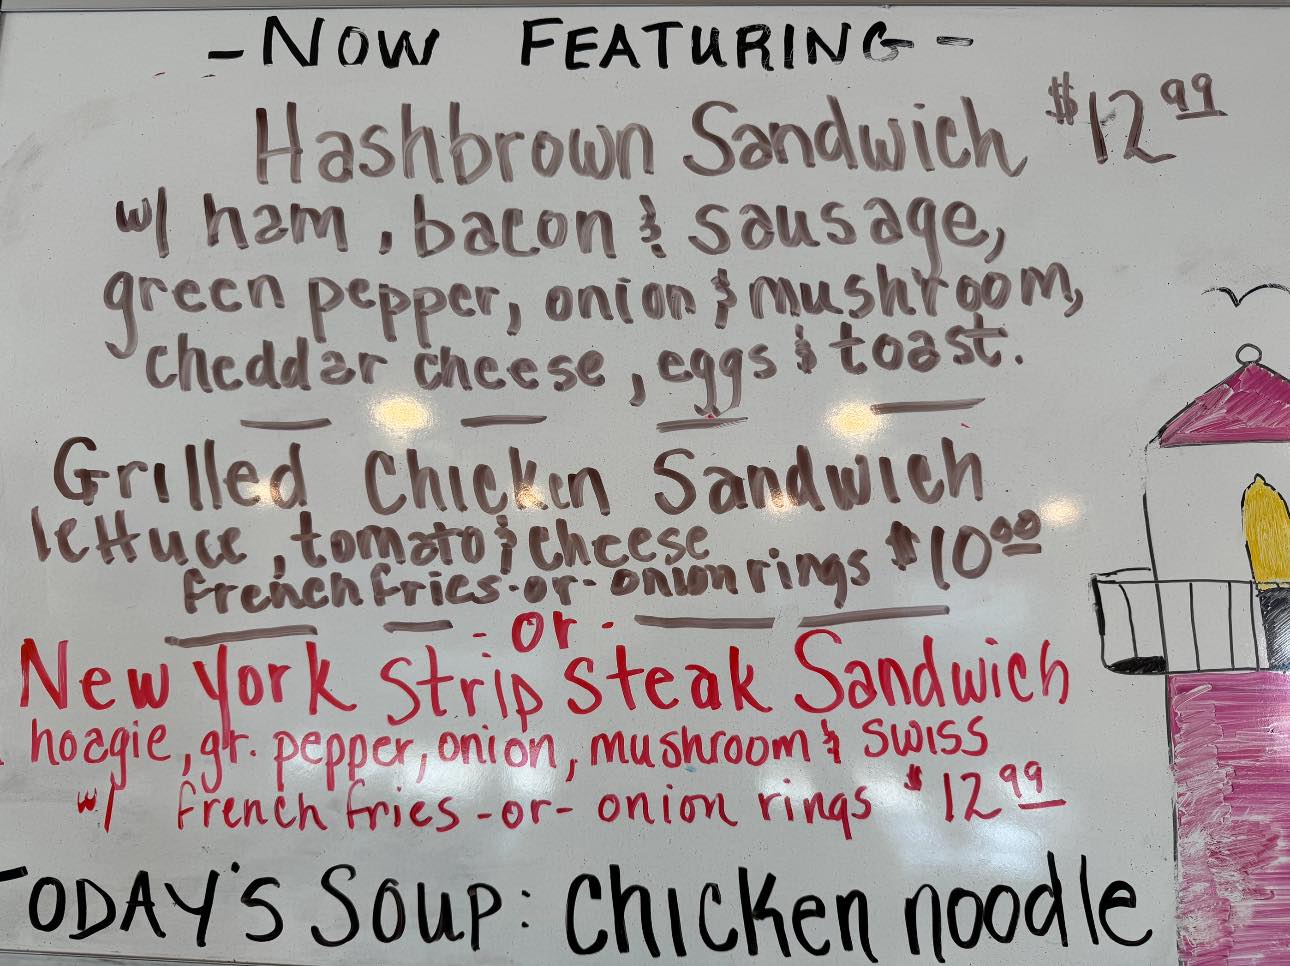 - NOW FEATURING -
Hashbrown Sandwich $12.99
w/ ham, bacon & sausage,
green pepper, onion & mushroom,
cheddar cheese, eggs & toast.
Grilled Chicken Sandwich
lettuce, tomato & cheese
french fries -or- onion rings $10.00
- or -
New York Strip Steak Sandwich
hoagie, gr. pepper, onion, mushroom & swiss
w/ french fries -or- onion rings $12.99
TODAY'S SOUP: Chicken noodle